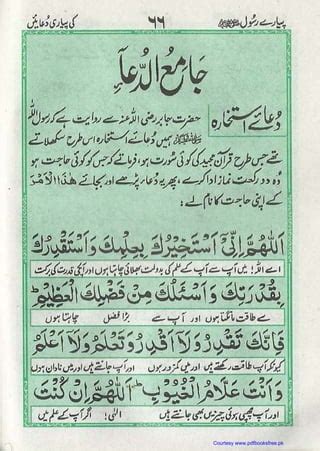 پیارے رسول ﷺ ۶۶ کی پیاری دُعائیں
جَامِعُ الدُّعَا
دُعائے استخارہ
حضرت جابر رضی اللہ عنہ سے روایت ہے کہ رسول اللہ
ﷺ ہمیں دُعائے استخارہ اس طرح سکھلاتے
تھے جس طرح قرآن مجید کی کوئی سُورت ہو، فرماتے کہ جس کو کوئی حاجت ہو
وہ دو رکعت نماز ادا کرے، پھر یہ دُعا پڑھے اور بجائے هٰذَا الْاَمْرَ
کے اپنی حاجت کا نام لے:
اَللّٰهُمَّ اِنِّیْ اَسْتَخِیْرُكَ بِعِلْمِكَ وَاَسْتَقْدِرُكَ
اے اللہ! میں آپ سے آپ کے علم کی بدولت بھلائی چاہتا ہوں اور آپکی قدرت کی برکت
بِقُدْرَتِكَ وَاَسْئَلُكَ مِنْ فَضْلِكَ الْعَظِیْمِ
سے طاقت مانگتا ہوں اور آپ سے بڑا فضل چاہتا ہوں
فَاِنَّكَ تَقْدِرُ وَلَا اَقْدِرُ وَتَعْلَمُ وَلَا اَعْلَمُ
کیونکہ آپ طاقت رکھتے ہیں اور میں کمزور ہوں اور آپ جانتے ہیں اور میں نادان ہوں
وَاَنْتَ عَلَّامُ الْغُیُوْبِ اَللّٰهُمَّ اِنْ كُنْتَ
اور آپ چھپی ہوئی چیزیں بھی جانتے ہیں الٰہی! اگر آپ کے علم میں
Courtesy www.pdfbooksfree.pk